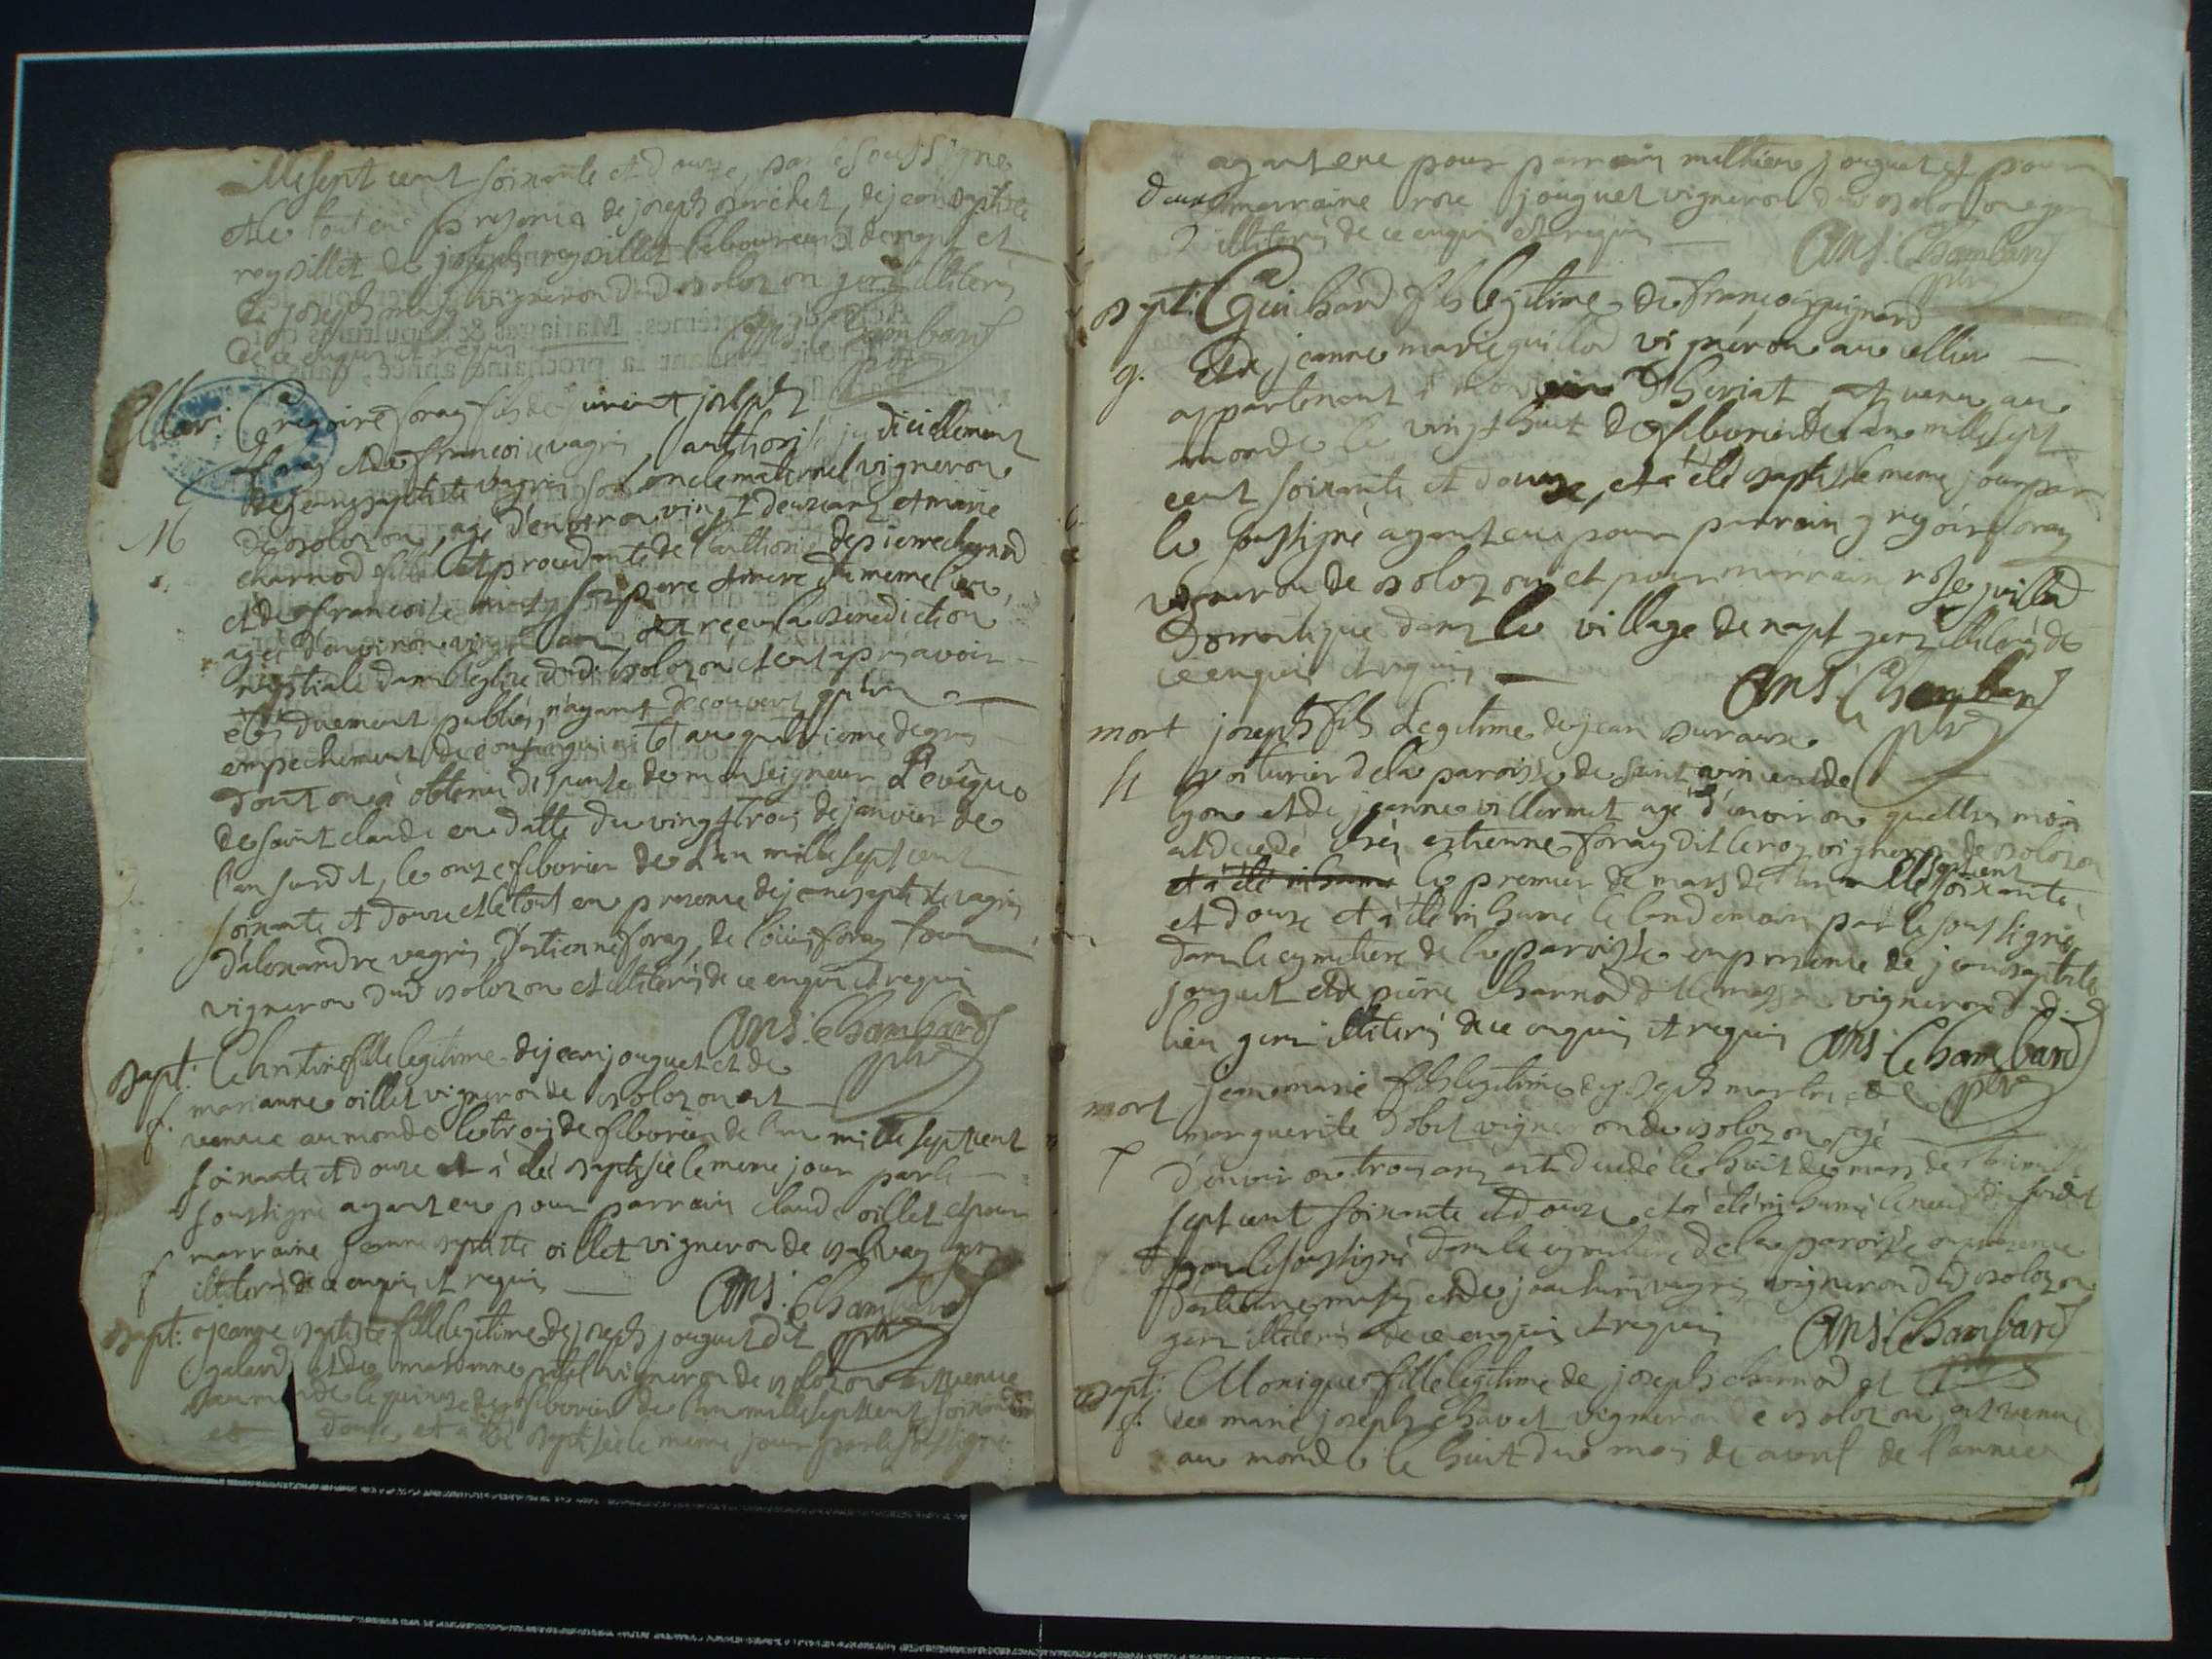 mille sept cent soixante et douze, par le soussigné
et le tout en presence de joseph perichet, de jean baptiste
reysillet de joseph reysillet laboureurs de napt et
de joseph vigneron dud bolozon gens illiterés
de ce enquis et requis Ans. Chambard
ptre
Mari: Gregoire foray fils de joseph
foray et de francoise vagrin, authorisé judiciellement
de jean baptiste vagrin son oncle maternel vigneron
16 de bolozon, agé d'environ vingt deux ans et marie
charnod fille et procedante de l'authorité de pierre charnod
et de francoise ses pere et mere du meme lieu,
agée d'environ vingt ans, ont reçeu la benediction
nuptiale dans l'eglise dud bolozon et ce apres avoir
été duement publiés, n'ayant decouvert qu'un
empechement de consanguinité au quatrieme degré
dont on a obtenu dispense de monseigneur L'evêque
de saint claude en datte du vingt trois de janvier de
l'an susdit, le onze febvrier de l'an mille sept cent
soixante et douze et le tout en presence de jean baptiste vagrin
d'alexandre vagrin, d'estienne foray, de loüis foray tous
vignerons dud bolozon et illiterés de ce enquis et requis
Ans. Chambard
ptre
bapt: Christine fille legitime de jean jouguet et de
marianne oillet vigneron de bolozon est
f. venuë au monde le trois de febvrier de l'an mille sept cent
soixante et douze et à été baptisée le meme jour par le
soussigné ayant eu pour parrain claude oillet et pour
marraine jeanne baptiste oillet vigneron de gens
illiterés de ce enquis et requis Ans. Chambard
ptre
bapt: jeanne baptiste fille legitime de joseph jouguet dit
galand et de vigneron de bolozon est venuë
au monde le quinze de febvrier de l'an mille sept cent soixante
et douze, et à été baptisée le meme jour par le soussigné
ayant eue pour parrain mathieu jouguet et pour
marraine rose jouguet vigneron dud bolozon gens
illiterés de ce enquis et requis Ans. Chambard
ptre
bapt: Guichard fils legitime de francois guignard
g. et de jeanne marie guillod vigneron au cellier
appartenant à d'heriat est venu au
monde le vingt huit de febvrier de l'an mille sept
cent soixante et douze, et à été baptisé le meme jour par
le soussigné ayant eu pour parrain gregoire foray
vigneron de bolozon et pour marraine rose guillod
domestique dans le village de napt gens illiterés de
ce enquis et requis Ans. Chambard
ptre
mort joseph fils Legitime de jean
voiturier de la paroisse de saint vincent de
lyon et de jeanne villermet agé d'environ quattre mois
est decedé chés estienne foray dit le roy vigneron de bolozon
et à été inhumé le premier de mars de l'an mille sept cent soixante
et douze et à été inhumé le landemain par le soussigné
dans le cymetiere de la paroisse en presence de jean baptiste
jouguet et de pierre charnod vignerons dud
lieu gens illiterés de ce enquis et requis Ans. Chambard
ptre
mort jean marie fils legitime de joseph et de
marguerite vigneron de bolozon, agé
d'environ trois ans est decedé le huit de mars de l'an mille
sept cent soixante et douze et à été inhumé le neuf du susdit
par le soussigné dans le cymetiere de la paroisse en presence
d'estienne et de vagrin vignerons dud bolozon
gens illiterés de ce enquis et requis Ans. Chambard
ptre
bapt: Monique fille legitime de joseph charnod et
f. de marie joseph chavet vigneron de bolozon, est venuë
au monde le huit du mois de avril de l'année